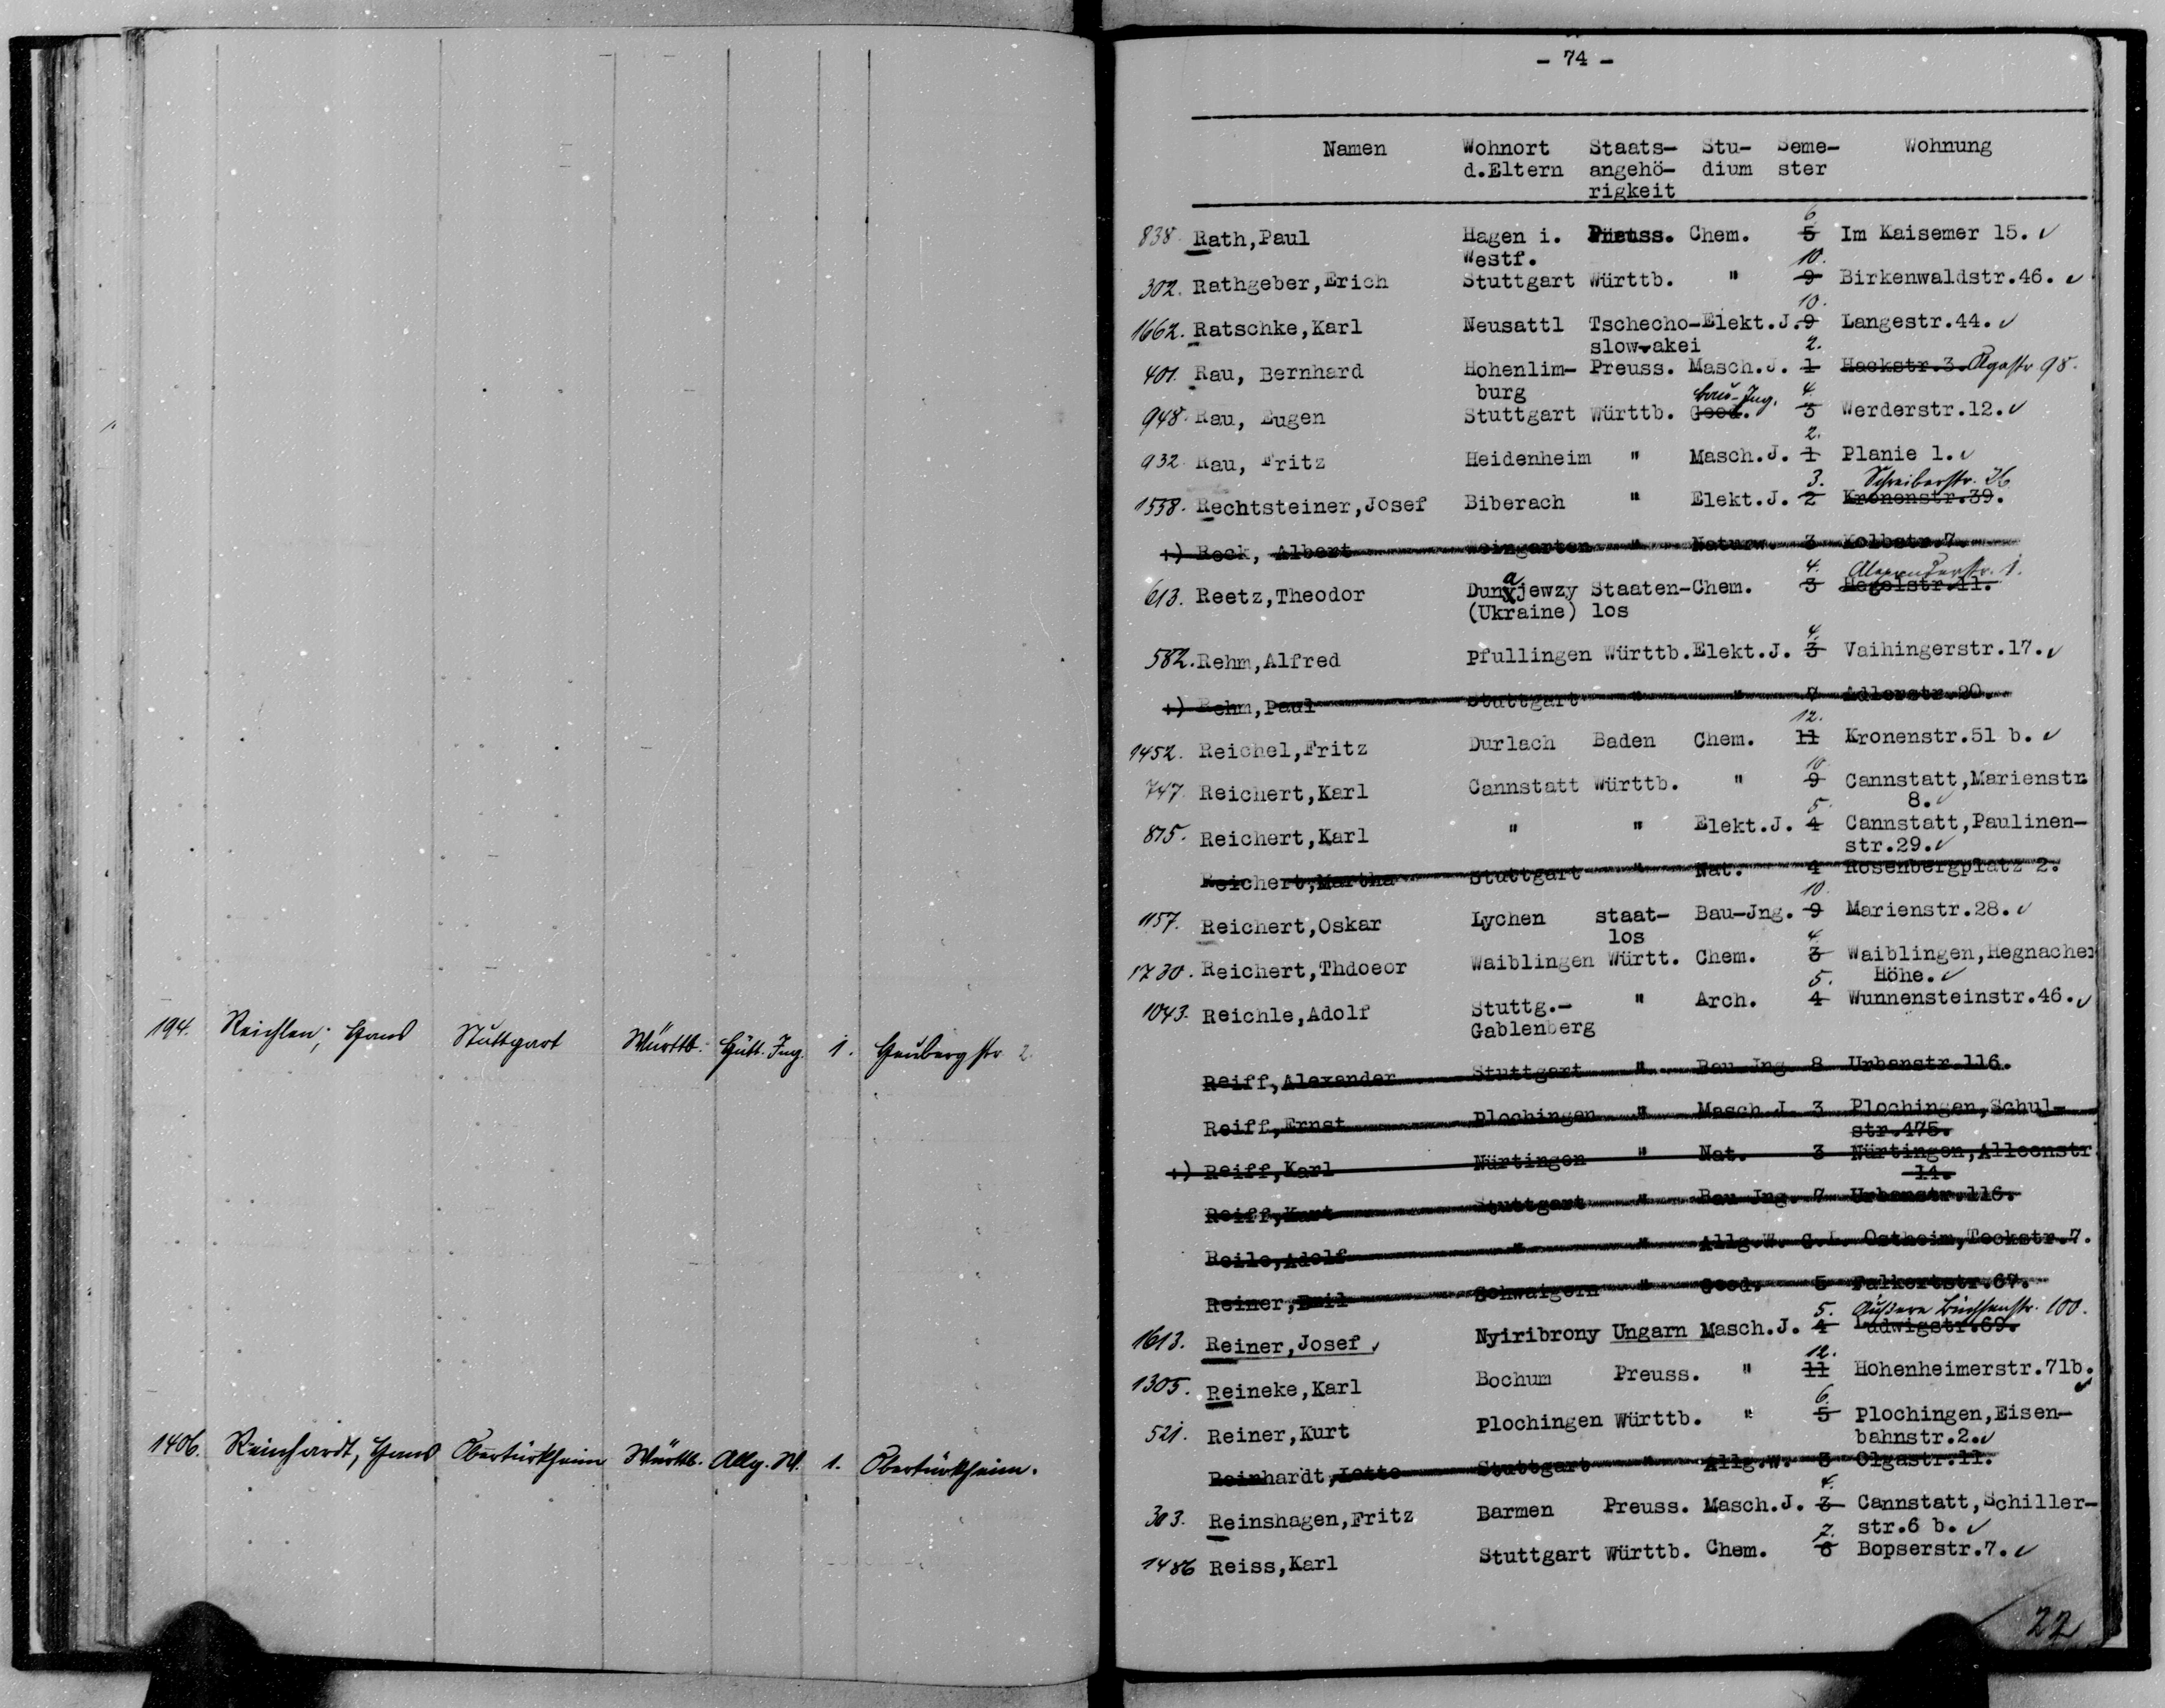 194. Reichlen, Hans Stuttgart Württb. Hütt. Ing. 1. Heubergstr. 2.
1406. Reinhardt, Hans Obertürkheim Württb. Allg. W. 1. Obertürkheim.
- 74 -
Namen Wohnort Staats- Stu- Seme- Wohnung
d.Eltern angehö- dium ster
rigkeit
6
838. Rath,Paul Hagen i. Preuss. Chem. 5 Im Kaisemer 15.
Westf. 10.
302. Rathgeber,Erich Stuttgart Württb. " 9 Birkenwaldstr.46.
10.
1662. Ratschke,Karl Neusattl Tschecho-Elekt.J. 9 Langestr.44.
slow-akei 2.
401. Rau, Bernhard Hohenlim- Preuss. Masch.J. 1 Hackstr.3. 98.
burg Bau-Ing. 4.
948. Rau, Eugen Stuttgart Württb. Geod. 3 Werderstr.12.
2.
932. Rau, Fritz Heidenheim " Masch.J. 1 Planie 1.
3. Schreiberstr. 26
1538. Rechtsteiner,Josef Biberach " Elekt.J. 2 Kronenstr.39.
+) Reck, Albert Weingarten " Naturw. 3 Kolbstr.7.
a 4. Alexanderstr. 1.
613. Reetz,Theodor Dunxjewzy Staaten-Chem. 3 Hegelstr.11.
(Ukraine) los
4.
582. Rehm,Alfred Pfullingen Württb.Elekt.J. 3 Vaihingerstr.17.
+) Rehm,Paul Stuttgart " " 7 Adlerstr.20.
12.
1452. Reichel,Fritz Durlach Baden Chem. 11 Kronenstr.51 b.
10
747. Reichert,Karl Cannstatt Württb. " 9 Cannstatt,Marienstr.
5. 8.
875. Reichert,Karl " " Elekt.J. 4 Cannstatt,Paulinen-
str.29.
Reichert,Martha Stuttgart " Nat. 4 Rosenbergplatz 2.
10.
1157. Reichert,Oskar Lychen staat- Bau-Jng. 9 Marienstr.28.
los 4.
1730. Reichert,Thdoeor Waiblingen Württ. Chem. 3 Waiblingen,Hegnacher
5. Höhe.
1043. Reichle,Adolf Stuttg.- " Arch. 4 Wunnensteinstr.46.
Gablenberg
Reiff,Alexander Stuttgart " Bau Jng 8 Urbanstr.116.
Reiff,Ernst Plochingen " Masch.J. 3 Plochingen,Schul-
str.475.
+) Reiff,Karl Nürtingen " Nat. 3 Nürtingen,Alleenstr
14.
Reiff,Kurt Stuttgart " Bau Jng. 7 Urbanstr.116.
Reile,Adolf " " Allg.W. Ostheim,Teckstr.7.
Reiner,Emil Schwaigern " Geod. 5 Falkertstr.67.
5. Äußere Büchsenstr. 100.
1613. Reiner,Josef Nyiribrony Ungarn Masch.J. 4 Ludwigstr.69.
12.
1305. Reineke,Karl Bochum Preuss. " 11 Hohenheimerstr.71b.
6.
521. Reiner,Kurt Plochingen Württb. " 5 Plochingen,Eisen-
bahnstr.2.
Reinhardt,Lotte Stuttgart " Allg.W. 3 Olgastr.11.
4.
303. Reinshagen,Fritz Barmen Preuss. Masch.J. 3 Cannstatt,Schiller-
7. str.6 b.
1486 Reiss,Karl Stuttgart Württb. Chem. 6 Bopserstr.7.
22